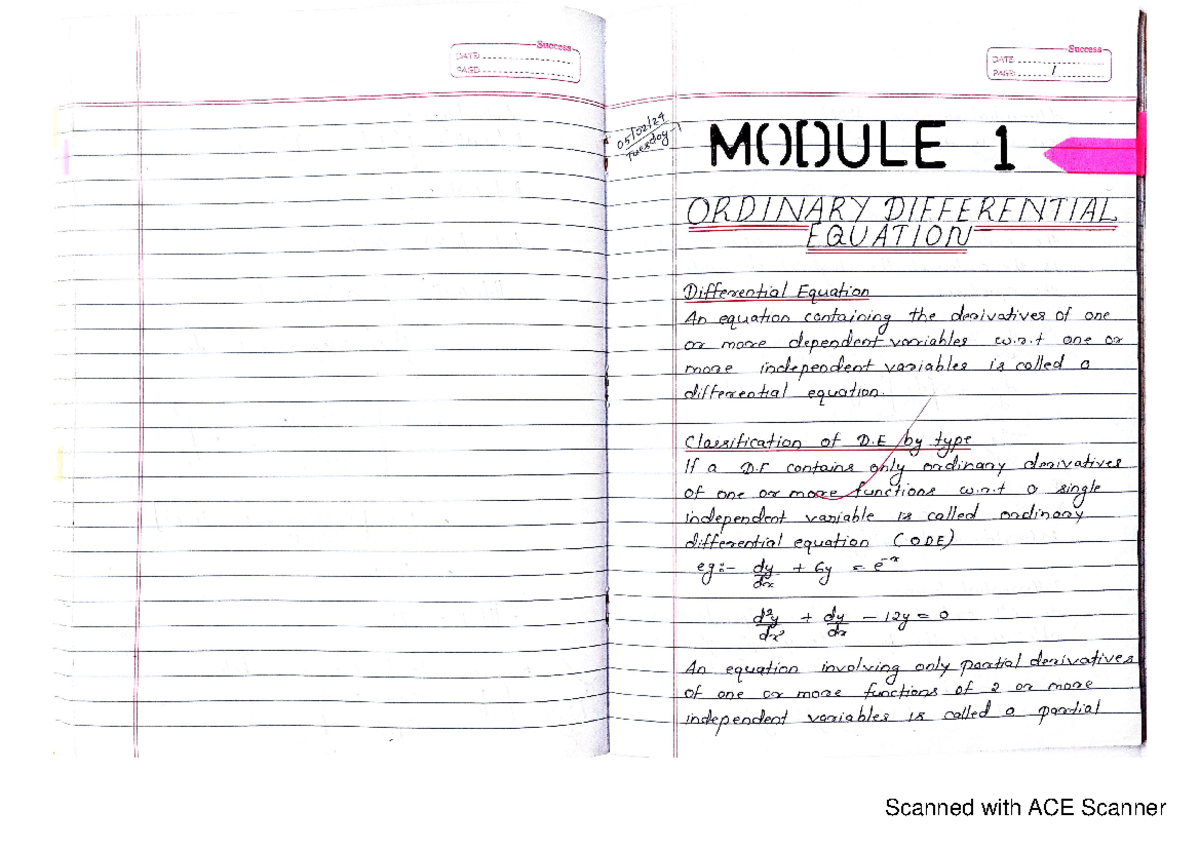 Success
DATE:
PAGE:
Success
DATE:
PAGE: 1
05/02/24
Tuesday
MODULE 1
ORDINARY DIFFERENTIAL
EQUATION
Differential Equation
An equation containing the derivatives of one
or more dependent variables w.r.t one or
more independent variables is called a
differential equation.
Classification of D.E by type
If a D.E contains only ordinary derivatives
of one or more functions w.r.t a single
independent variable is called ordinary
differential equation (ODE)
eg:- dy/dx + 6y = e^-x
d²y/dx² + dy/dx - 12y = 0
An equation involving only partial derivatives
of one or more functions of 2 or more
independent variables is called a partial
Scanned with ACE Scanner